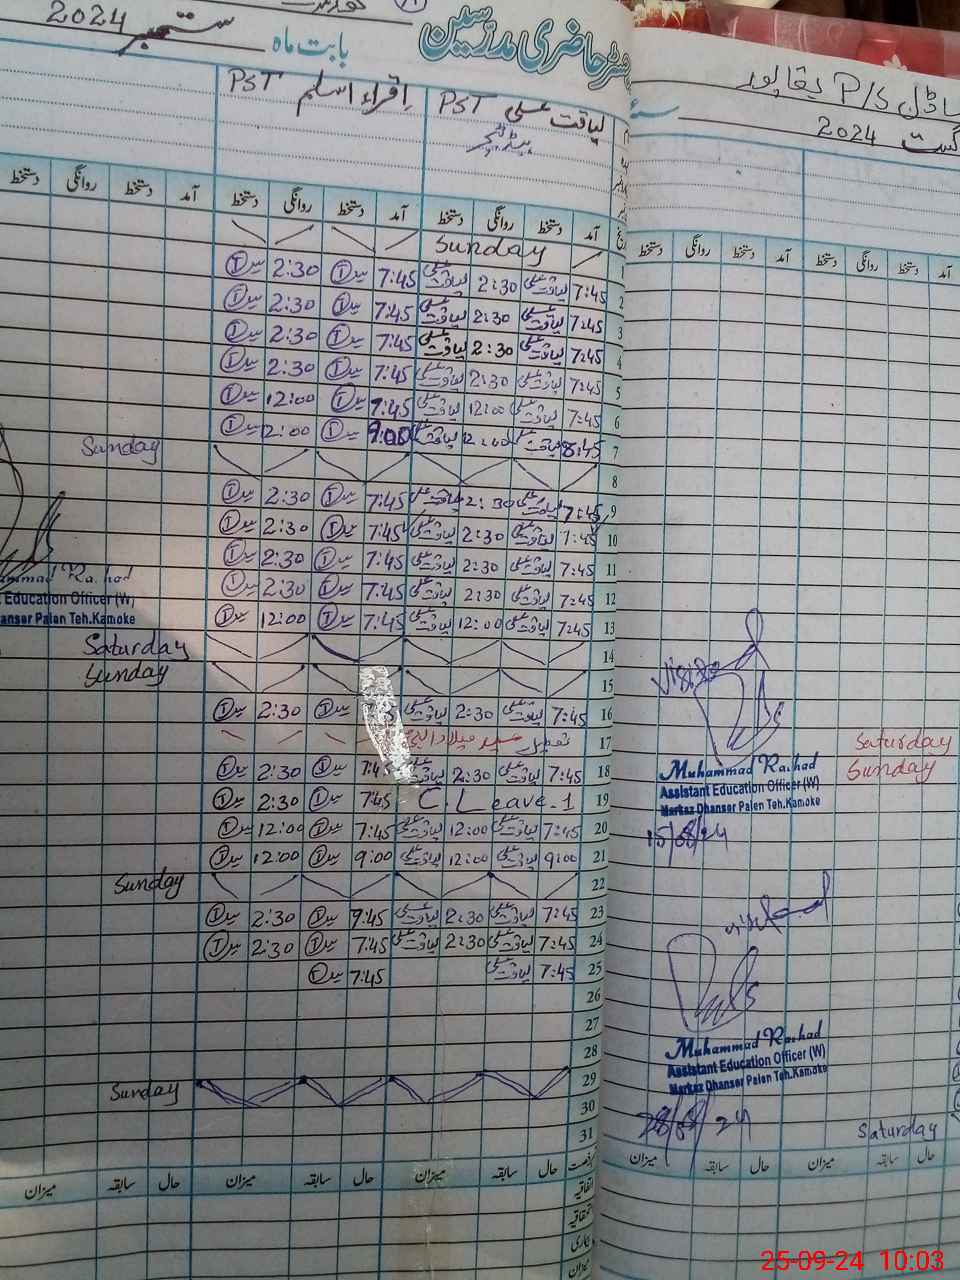 ستمبر 2024
بابت ماہ
رجسٹر حاضری مدرّسین
ماڈل P/S بقاپور
اگست 2024
لیاقت علی PST
ہیڈ ٹیچر
اقراء اسلم PST
آمد دستخط روانگی دستخط آمد دستخط روانگی دستخط آمد دستخط روانگی دستخط
آمد دستخط روانگی دستخط آمد دستخط روانگی دستخط
1 Sunday
2 7:45 لیاقت علی 2:30 لیاقت علی 7:45 2:30
3 7:45 لیاقت علی 2:30 لیاقت علی 7:45 2:30
4 7:45 لیاقت علی 2:30 لیاقت علی 7:45 2:30
5 7:45 لیاقت علی 2:30 لیاقت علی 7:45 2:30
6 7:45 لیاقت علی 12:00 لیاقت علی 7:45 12:00
7 8:45 لیاقت علی 12:00 لیاقت علی 9:00 12:00
8 Sunday
9 7:45 لیاقت علی 2:30 لیاقت علی 7:45 2:30
10 7:45 لیاقت علی 2:30 لیاقت علی 7:45 2:30
11 7:45 لیاقت علی 2:30 لیاقت علی 7:45 2:30
12 7:45 لیاقت علی 2:30 لیاقت علی 7:45 2:30
13 7:45 لیاقت علی 12:00 لیاقت علی 7:45 12:00
14 Saturday
15 Sunday
16 7:45 لیاقت علی 2:30 لیاقت علی 2:30
17 تعطیل عید میلاد النبی
18 7:45 لیاقت علی 2:30 لیاقت علی 7:45 2:30
19 C. Leave-1 7:45 2:30
20 7:45 لیاقت علی 12:00 لیاقت علی 7:45 12:00
21 9:00 لیاقت علی 12:00 لیاقت علی 9:00 12:00
22 Sunday
23 7:45 لیاقت علی 2:30 لیاقت علی 9:45 2:30
24 7:45 لیاقت علی 2:30 لیاقت علی 7:45 2:30
25 7:45 لیاقت علی 7:45
26
27
28
29 Sunday
30
31
رخصت حال سابقہ میزان حال سابقہ میزان حال سابقہ میزان
اتفاقیہ
استحقاقیہ
بیماری
میزان
Muhammad Rashad
Education Officer (W)
Dhanser Palen Teh.Kamoke
Visited
Muhammad Rashad
Assistant Education Officer (W)
Markaz Dhanser Palen Teh.Kamoke
15/08/24
Saturday
Sunday
visited
Muhammad Rashad
Assistant Education Officer (W)
Markaz Dhanser Palen Teh.Kamoke
28/08/24
Saturday
حال سابقہ میزان حال سابقہ میزان
25-09-24 10:03